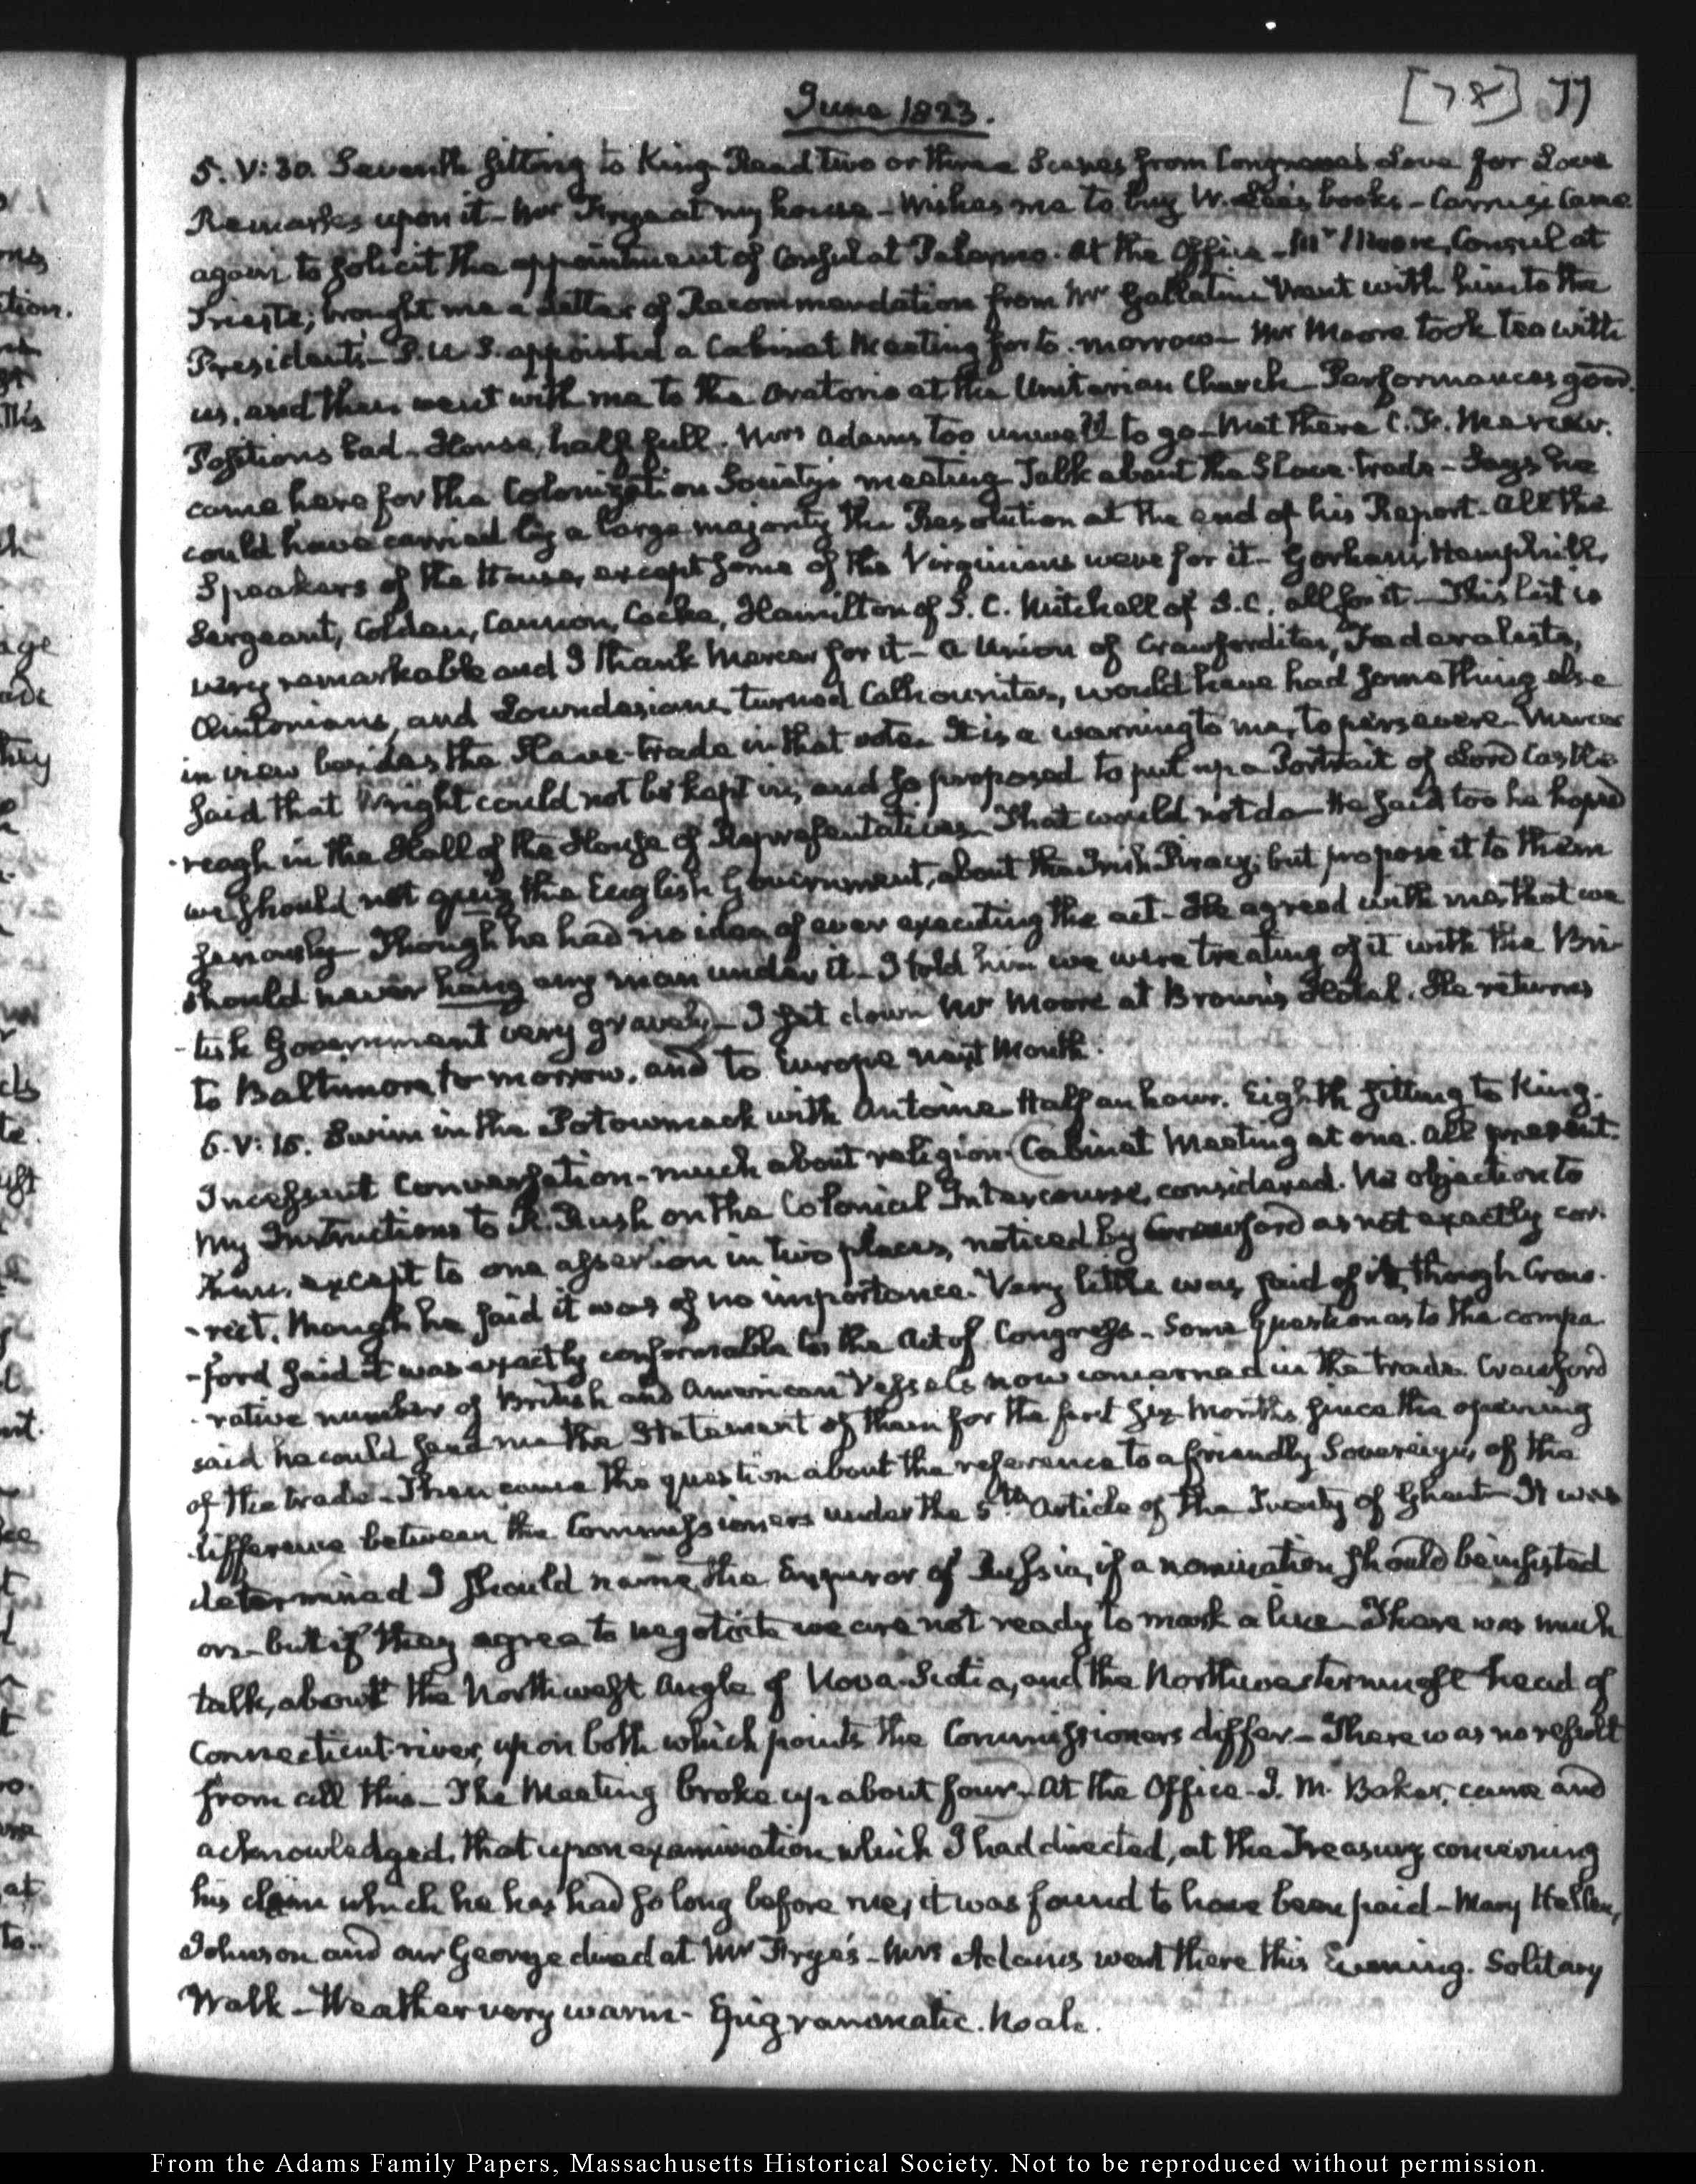 June 1823.
[78] 77
5. V: 30. Seventh sitting to King. Read two or three Scenes from Congreve's Love for Love
Remarks upon it - Mr Frye at my house - Wishes me to buy W. Lee's books - Carusi came
again to solicit the appointment of Consul at Palermo. At the Office - Mr Moore, Consul at
Trieste; brought me a Letter of Recommendation from Mr Gallatin. Went with him to the
President's - P. U. S. appointed a Cabinet Meeting for to-morrow - Mr Moore took tea with
us, and then went with me to the Oratorio at the Unitarian Church - Performances good.
Positions bad - House, half full. Mrs Adams too unwell to go - Met there C. F. Mercer.
came here for the Colonization Society's meeting - Talk about the Slave-trade - Says he
could have carried by a large majority the Resolution at the end of his Report - All the
Speakers of the House, except some of the Virginians were for it - Gorham, Hemphill,
Sergeant, Colden, Cannon, Cocke, Hamilton of S. C. Mitchell of S. C. all for it - This list is
very remarkable and I thank Mercer for it - A Union of Crawfordites, Federalists,
Clintonians, and Lowndesians turned Calhounites, would have had something else
in view besides the Slave-trade in that vote. It is a warning to me, to persevere - Mercer
said that Wright could not be kept in, and so proposed to put up a Portrait of Lord Castle-
-reagh in the Hall of the House of Representatives - That would not do - He said too he hoped
we should not quiz the English Government, about the Piracy; but propose it to them
seriously - Though he had no idea of ever executing the act - He agreed with me, that we
should never hang any man under it - I told him we were treating of it with the Bri-
-tish Government very gravely - I set down Mr Moore at Brown's Hotel. He returns
to Baltimore to-morrow, and to Europe next Month.
6. V: 15. Swim in the Potowmack with Antoine - Half an hour. Eighth sitting to King.
Incessant Conversation - much about religion - Cabinet Meeting at one. All present.
My Instructions to R. Rush on the Colonial Intercourse, considered. No objection to
them, except to one assertion in two places, noticed by Crawford as not exactly cor-
-rect, though he said it was of no importance. Very little was said of it, though Craw-
-ford said it was exactly conformable to the Act of Congress - Some question as to the compa-
-rative number of British and American Vessels now concerned in the trade. Crawford
said he could send me the Statement of them for the first six Months since the opening
of the trade - Then came the question about the reference to a friendly Sovereign, of the
difference between the Commissioners under the 5th Article of the Treaty of Ghent - It was
determined I should name the Emperor of Russia, if a nomination should be insisted
on - but if they agree to negotiate we are not ready to mark a line - There was much
talk, about the Northwest Angle of Nova-Scotia, and the Northwesternmost head of
Connecticut river, upon both which points the Commissioners differ - There was no result
from all this - The Meeting broke up about four - At the Office - J. M. Baker, came and
acknowledged, that upon examination which I had directed, at the Treasury concerning
his claim which he has had so long before me, it was found to have been paid - Mary Hellen,
Johnson and our George dined at Mr Frye's - Mrs Adams went there this Evening. Solitary
Walk - Weather very warm - Epigrammatic. Noah.
From the Adams Family Papers, Massachusetts Historical Society. Not to be reproduced without permission.